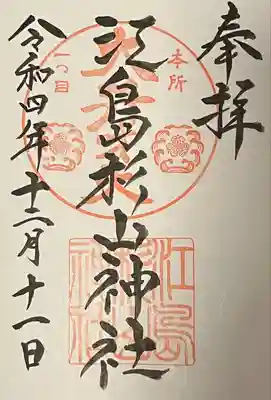 奉拝
本所
一つ目
江島杉山神社
江島
神社
令和四年十二月十一日